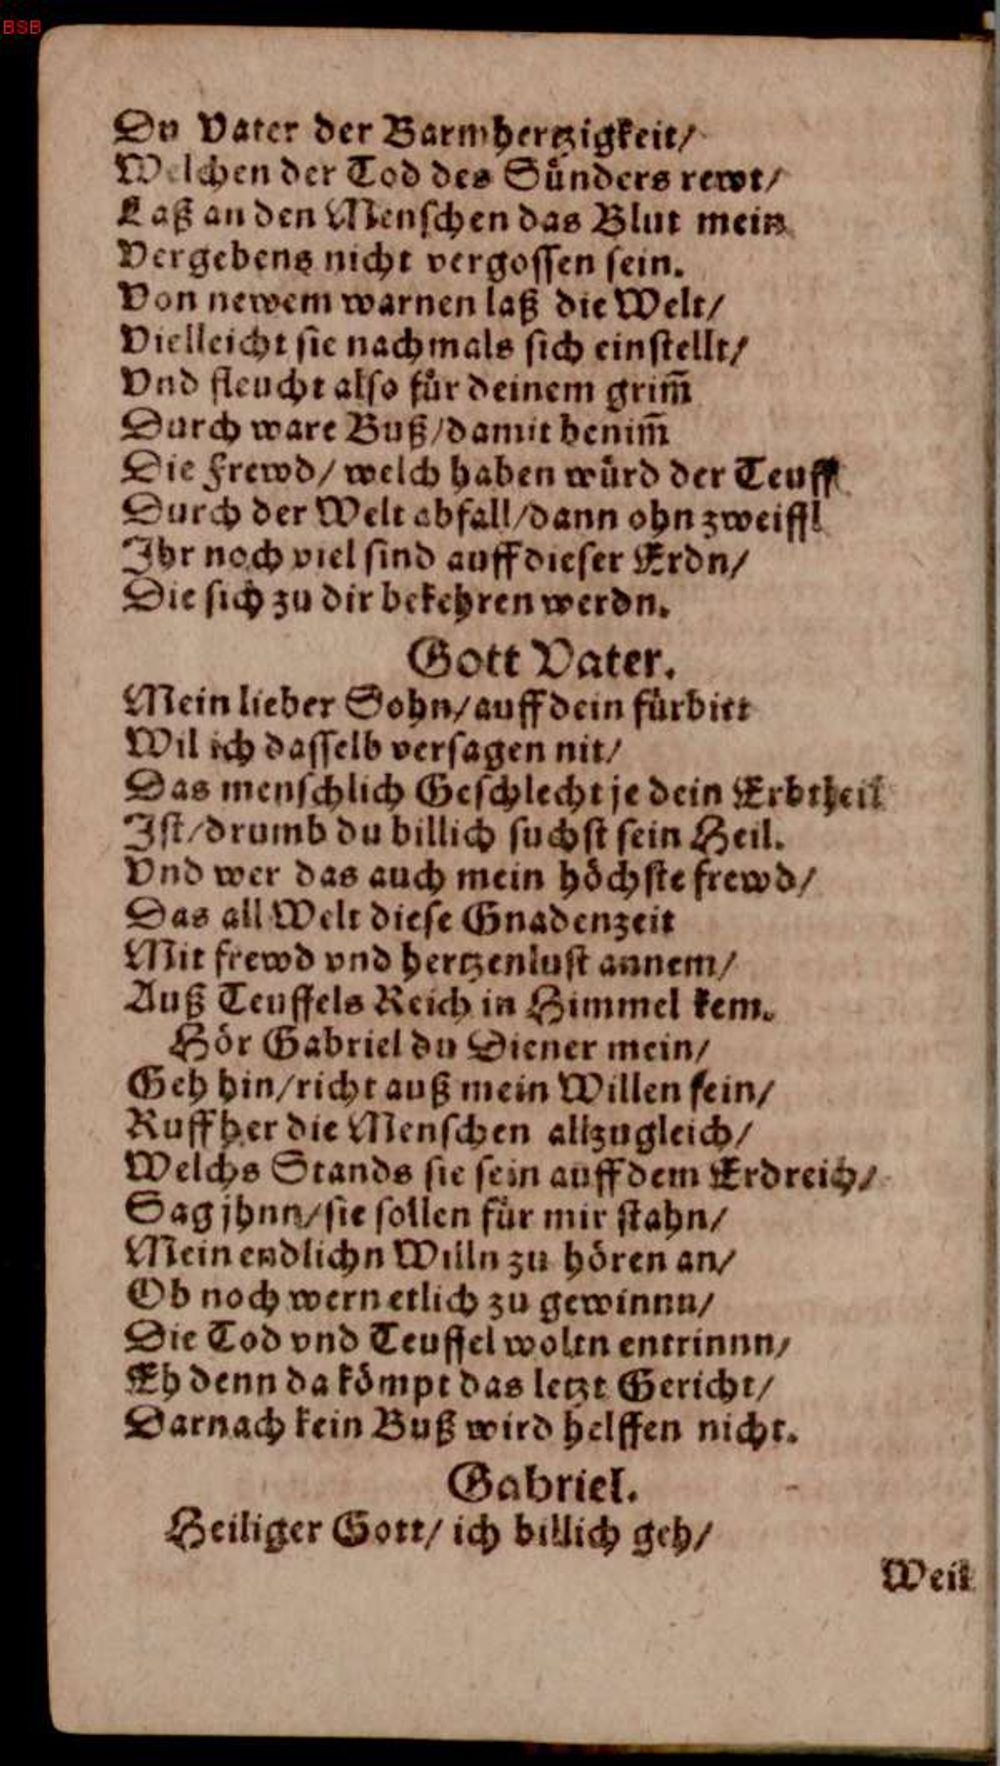 BSB
Du Vater der Barmhertzigkeit/
Welchen der Tod des Sünders rewt/
Laß an den Menschen das Blut mein
Vergebens nicht vergossen sein.
Von newem warnen laß die Welt/
Vielleicht sie nachmals sich einstellt/
Vnd fleucht also für deinem grim̅
Durch ware Buß/damit benim̅
Die Frewd/ welch haben würd der Teuff
Durch der Welt abfall/dann ohn zweiffl
Ihr noch viel sind auff dieser Erdn/
Die sich zu dir bekehren werdn.
Gott Vater.
Mein lieber Sohn/auff dein fürbitt
Wil ich dasselb versagen nit/
Das menschlich Geschlecht je dein Erbtheil
Ist/drumb du billich suchst sein Heil.
Vnd wer das auch mein höchste frewd/
Das all Welt diese Gnadenzeit
Mit frewd vnd hertzenlust annem/
Auß Teuffels Reich in Himmel kem.
Hör Gabriel du Diener mein/
Geh hin/richt auß mein Willen fein/
Ruff her die Menschen allzugleich/
Welchs Stands sie sein auff dem Erdreich/
Sag jhnn/sie sollen für mir stahn/
Mein endlichn Willn zu hören an/
Ob noch wern etlich zu gewinnn/
Die Tod vnd Teuffel woltn entrinnn/
Eh denn da kömpt das letzt Gericht/
Darnach kein Buß wird helffen nicht.
Gabriel.
Heiliger Gott/ ich billich geh/
Weil